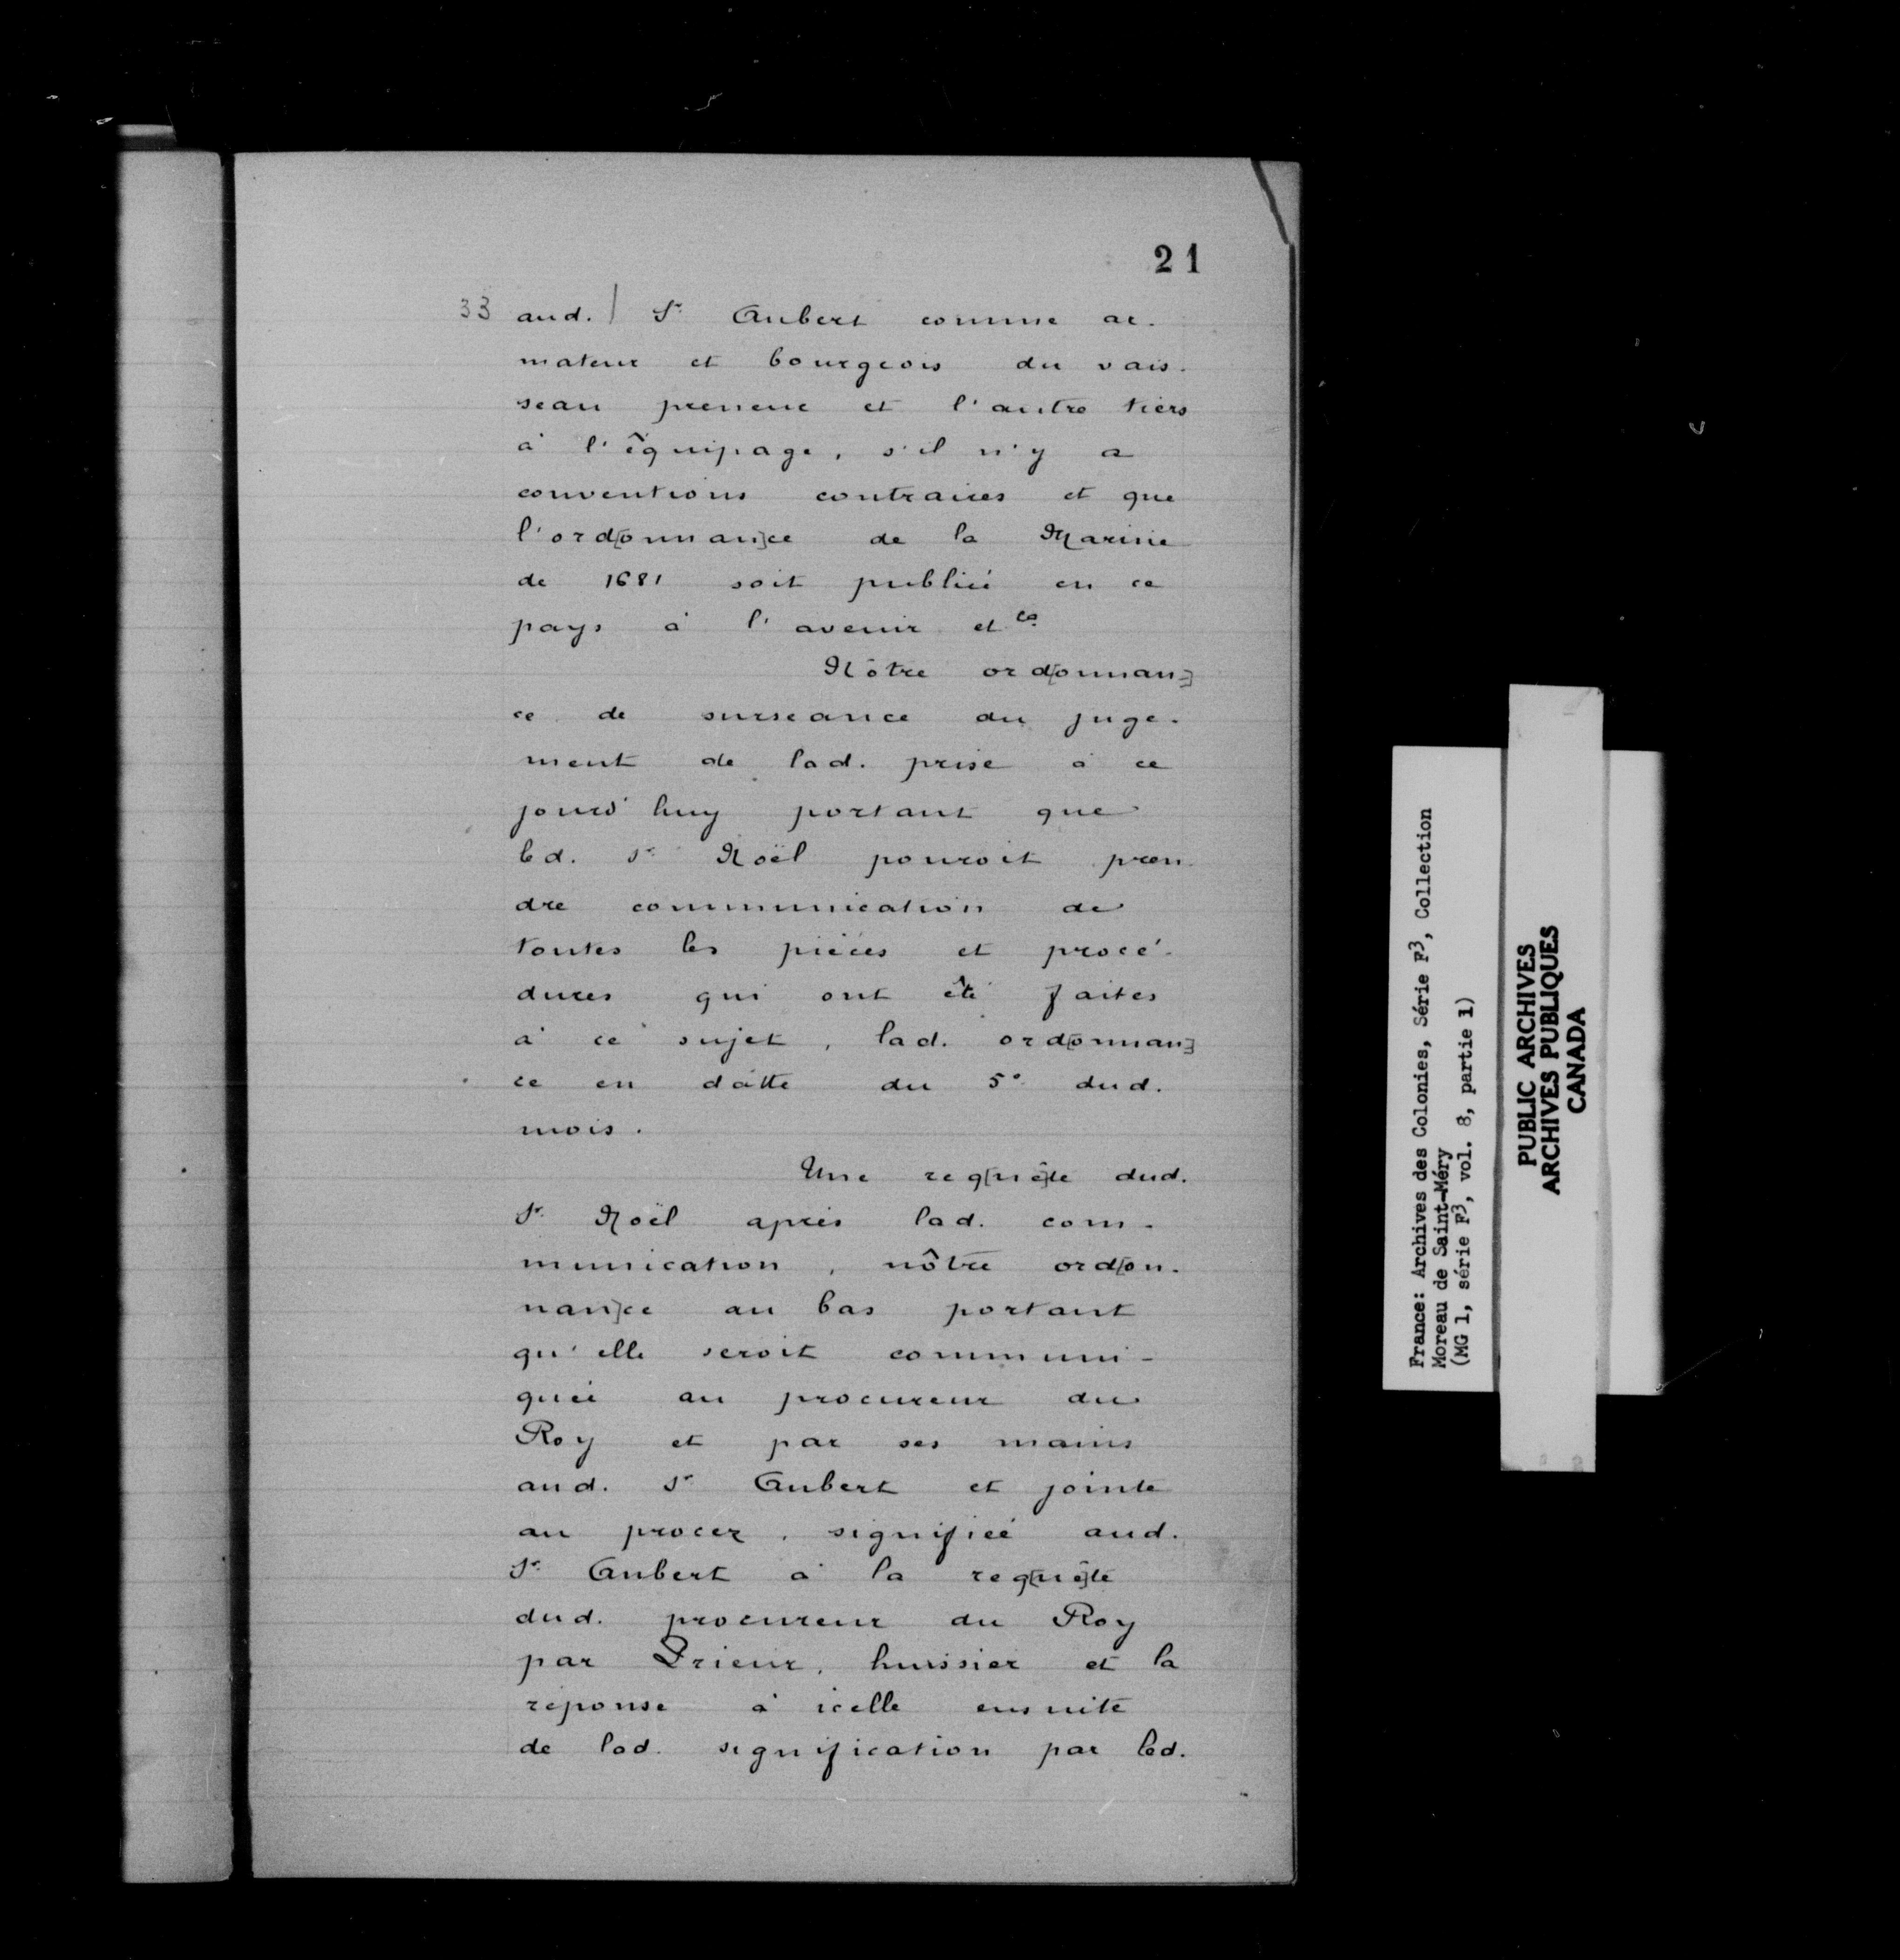 21
33 aud. / Sr Aubert comme ar-
mateur et bourgeois du vais-
seau preneur et l'autre tiers
à l'êquipage, s'il n'y a
conventions contraires et que
l'ord[onnan]ce de la Marine
de 1681 soit publiée en ce
pays à l'avenir et ca
Nôtre ord[onnan]
ce de surseance du juge-
ment de lad. prise à ce
jourd'huy portant que
led. Sr Noël pouroit pren-
dre communication de
toutes les pièces et procé-
dures qui ont êté faites
à ce sujet, lad. ord[onnan]
ce en datte du 5e dud.
mois.
Une req[uê]te dud.
Sr Noël après lad. com-
munication, nôtre ord[on-
nan]ce au bas portant
qu'elle seroit communi-
quée au procureur du
Roy et par ses mains
aud. Sr Aubert et jointe
au procez, signifiée aud.
Sr Aubert à la req[uê]te
dud. procureur du Roy
par Prieur, huissier et la
réponse à icelle ensuite
de lad. signification par led.
France: Archives des Colonies, Série F3, Collection
Moreau de Saint-Méry
(MG 1, série F3, vol. 8, partie 1)
PUBLIC ARCHIVES
ARCHIVES PUBLIQUES
CANADA